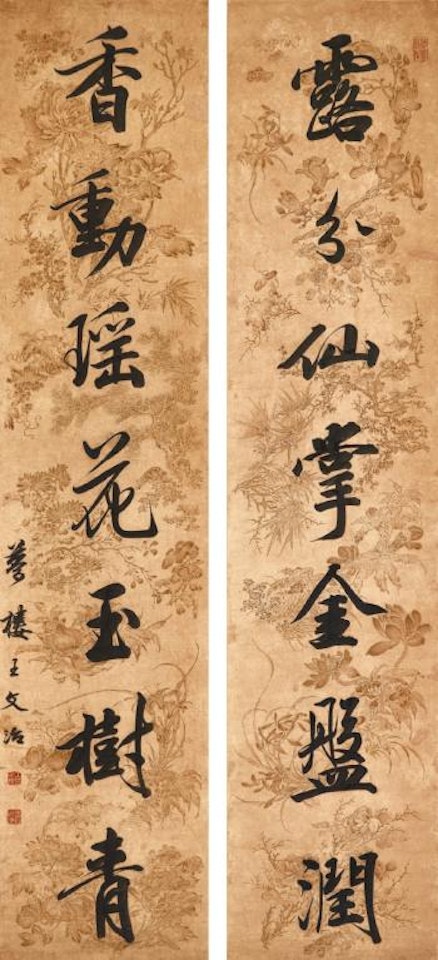 露分仙掌金盤潤
香動瑶花玉樹青
夢樓王文治